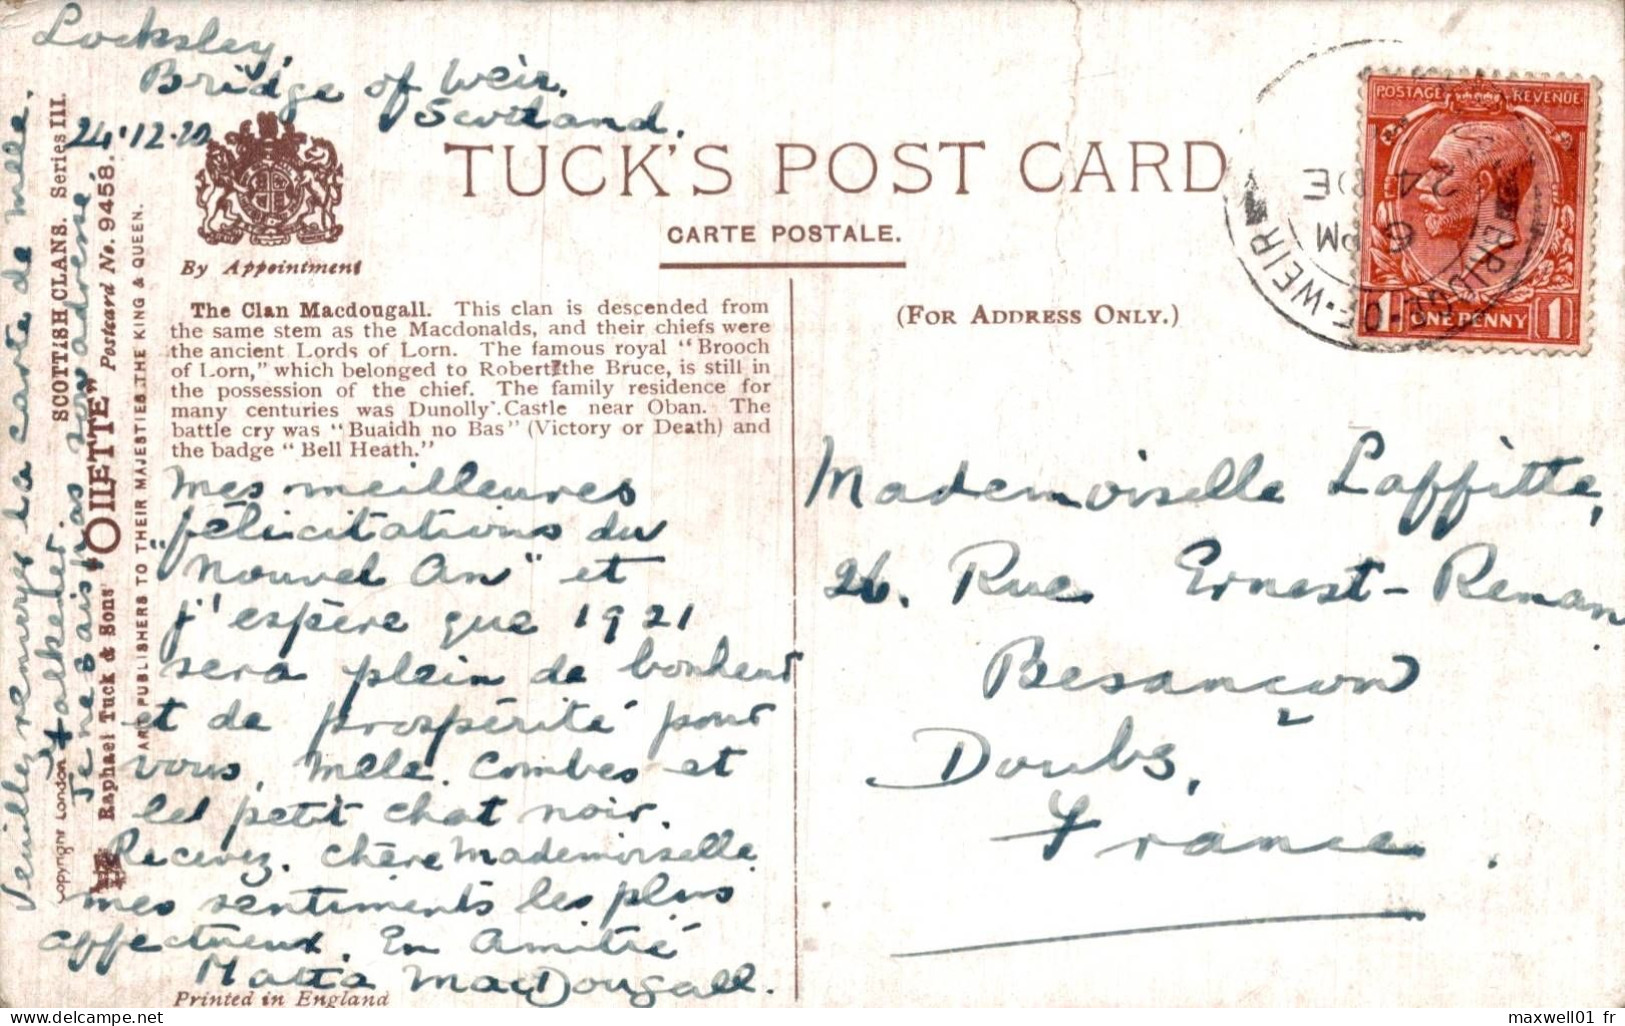 Locksley,
Bridge of Weir.
Scotland.
24.12.20
By Appointment
TUCK'S POST CARD
CARTE POSTALE.
(FOR ADDRESS ONLY.)
POSTAGE REVENUE
1 ONE PENNY 1
BRIDGE-OF-WEIR
6 PM
24 DE
The Clan Macdougall. This clan is descended from
the same stem as the Macdonalds, and their chiefs were
the ancient Lords of Lorn. The famous royal "Brooch
of Lorn," which belonged to Robert the Bruce, is still in
the possession of the chief. The family residence for
many centuries was Dunolly Castle near Oban. The
battle cry was "Buaidh no Bas" (Victory or Death) and
the badge "Bell Heath."
Mes meilleures
"félicitations du
Nouvel An" et
j'espère que 1921
sera plein de bonheur
et de prospérité pour
vous, Mlle. Combes et
le petit chat noir.
Recevez, chère Mademoiselle
mes sentiments les plus
affectueux. En amitié
MacDougall.
Printed in England
Mademoiselle Laffitte,
26. Rue Ernest-Renan
Besançon
Doubs,
France.
Veuillez remercier la carte de Mlle.
Je ne sais pas son adresse
SCOTTISH CLANS. Series III.
Copyright London
Raphael Tuck & Sons' "OILETTE" Postcard No. 9458.
ART PUBLISHERS TO THEIR MAJESTIES THE KING & QUEEN.
maxwell01 fr